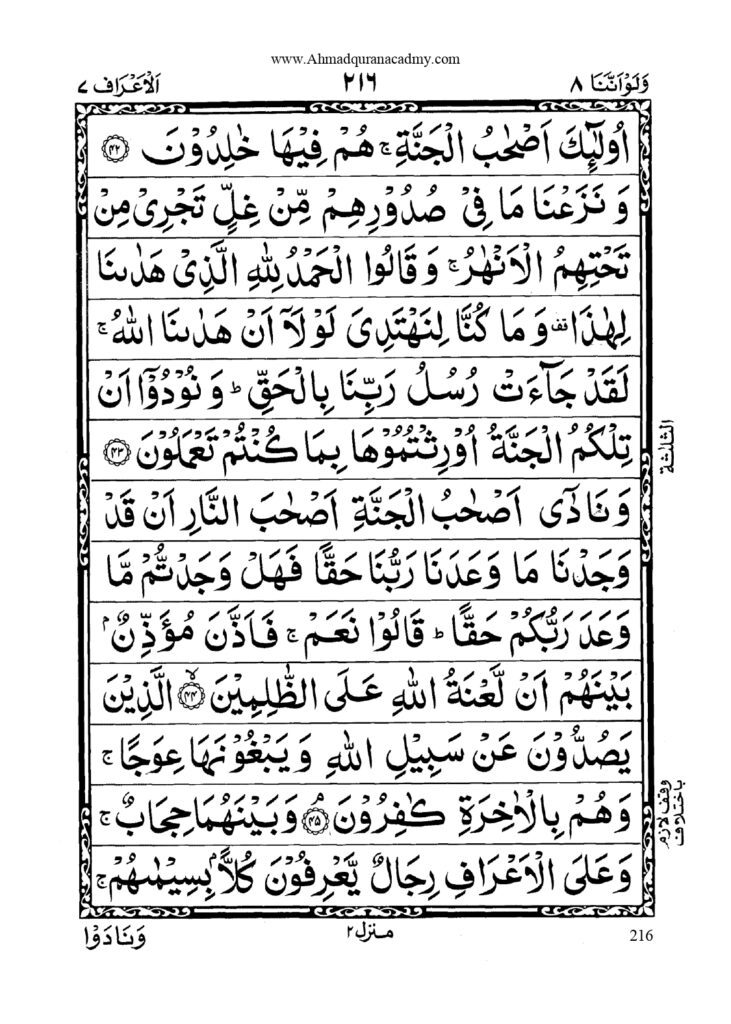 www.Ahmadquranacadmy.com
وَلَوْ اَنَّنَا ٨ ٢١٦ اَلْاَعْرَاف ٧
اُولٰٓئِكَ اَصْحٰبُ الْجَنَّةِ ۚ هُمْ فِيْهَا خٰلِدُوْنَ ﴿٤٢﴾
وَ نَزَعْنَا مَا فِيْ صُدُوْرِهِمْ مِّنْ غِلٍّ تَجْرِيْ مِنْ
تَحْتِهِمُ الْاَنْهٰرُ ۚ وَ قَالُوا الْحَمْدُ لِلّٰهِ الَّذِيْ هَدٰىنَا
لِهٰذَا ۫ وَ مَا كُنَّا لِنَهْتَدِيَ لَوْ لَاۤ اَنْ هَدٰىنَا اللّٰهُ ۚ
لَقَدْ جَآءَتْ رُسُلُ رَبِّنَا بِالْحَقِّ ؕ وَ نُوْدُوْۤا اَنْ
تِلْكُمُ الْجَنَّةُ اُوْرِثْتُمُوْهَا بِمَا كُنْتُمْ تَعْمَلُوْنَ ﴿٤٣﴾
الثلثة
وَ نَادٰۤى اَصْحٰبُ الْجَنَّةِ اَصْحٰبَ النَّارِ اَنْ قَدْ
وَجَدْنَا مَا وَعَدَنَا رَبُّنَا حَقًّا فَهَلْ وَجَدْتُّمْ مَّا
وَعَدَ رَبُّكُمْ حَقًّا ؕ قَالُوْا نَعَمْ ۚ فَاَذَّنَ مُؤَذِّنٌۢ
بَيْنَهُمْ اَنْ لَّعْنَةُ اللّٰهِ عَلَى الظّٰلِمِيْنَ ﴿٤٤﴾ۙ الَّذِيْنَ
يَصُدُّوْنَ عَنْ سَبِيْلِ اللّٰهِ وَ يَبْغُوْنَهَا عِوَجًا ۚ
وَ هُمْ بِالْاٰخِرَةِ كٰفِرُوْنَ ﴿٤٥﴾ۘ وَ بَيْنَهُمَا حِجَابٌ ۚ
وقف لازم
باختلاف
وَ عَلَى الْاَعْرَافِ رِجَالٌ يَّعْرِفُوْنَ كُلًّاۢ بِسِيْمٰىهُمْ ۚ
216 منزل ٢ وَنَادَوْا